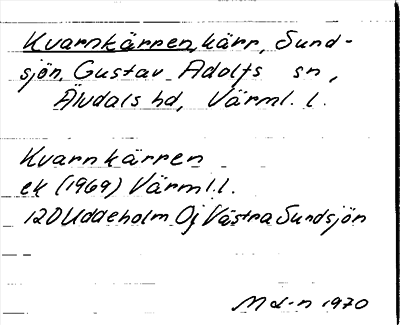 Kvarnkärren, kärr, Sund-
sjön, Gustav Adolfs sn,
Älvdals hd, Värml. l.
Kvarnkärren
ek (1969) Värml.l.
12D Uddeholm 0j Västra Sundsjön
Md-n 1970